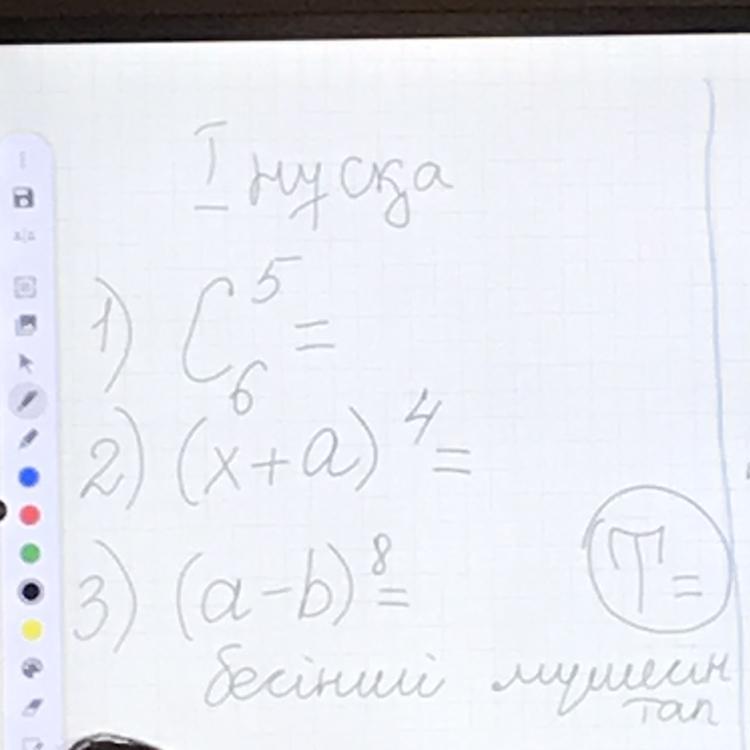 I нұсқа
1) C₆⁵ =
2) (x+a)⁴ =
3) (a-b)⁸ =
T =
бесінші мүшесін
тап